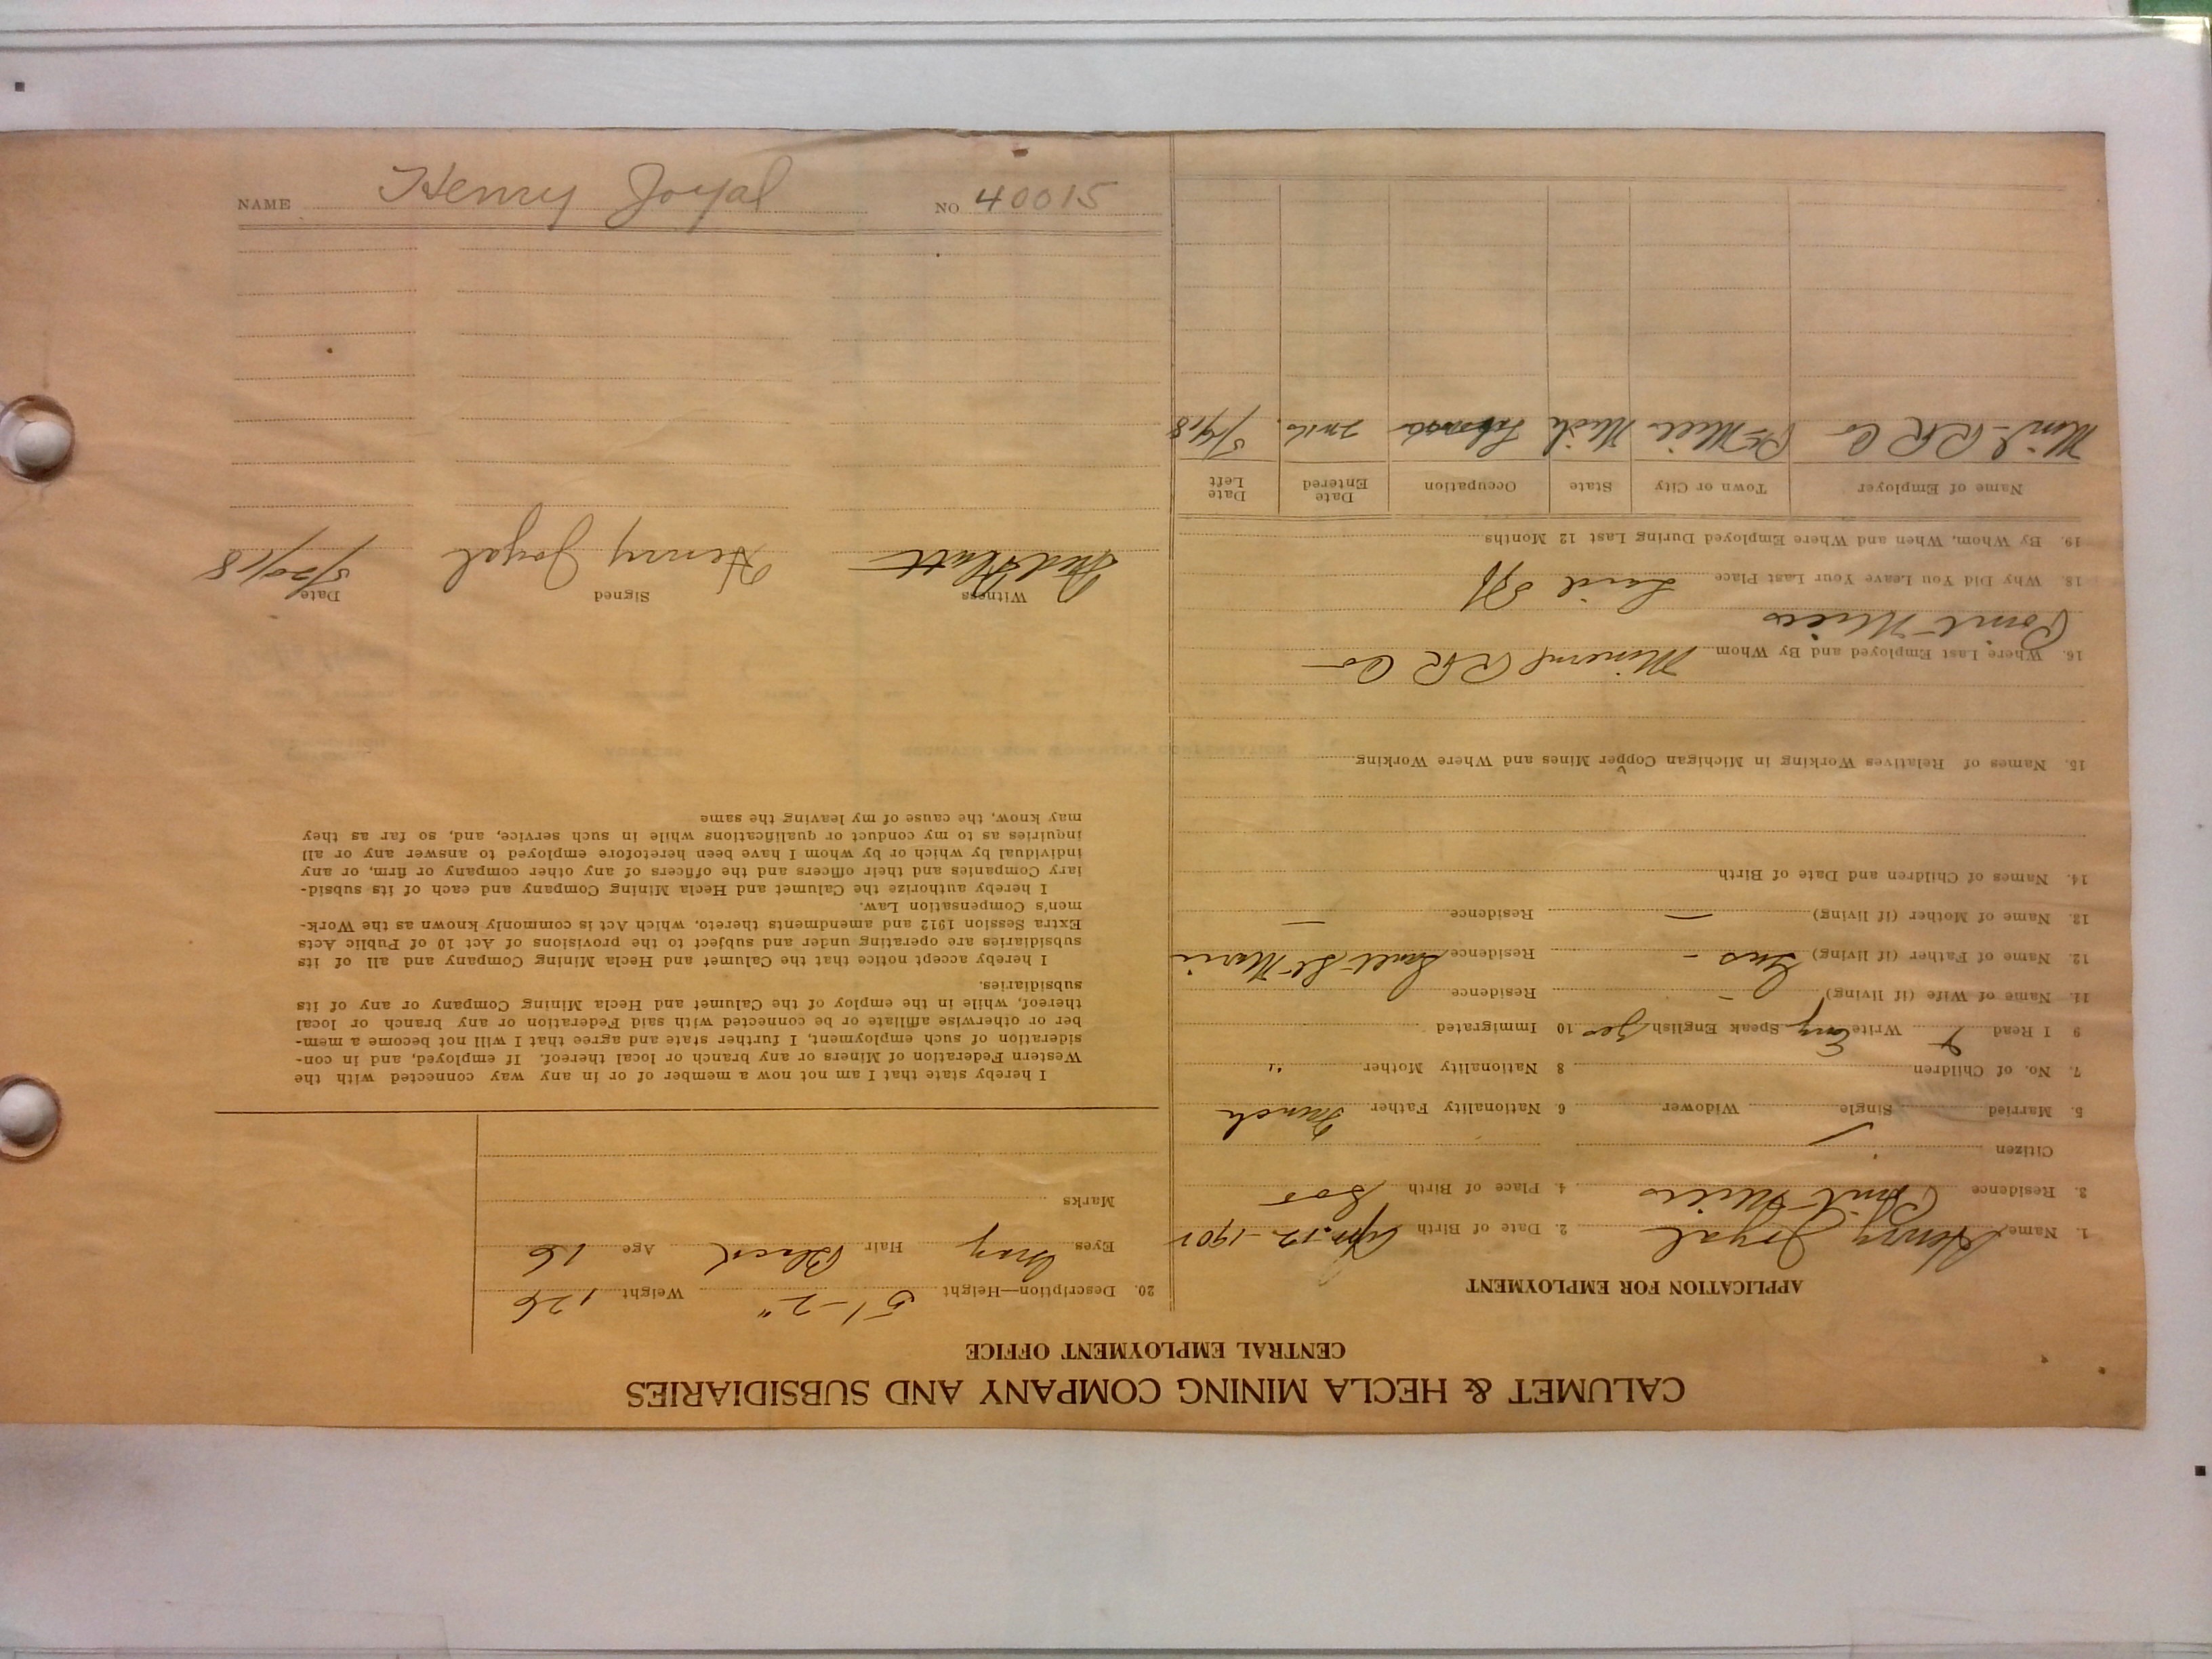 CALUMET & HECLA MINING COMPANY AND SUBSIDIARIES
CENTRAL EMPLOYMENT OFFICE
APPLICATION FOR EMPLOYMENT
1. Name Henry Joyal 2. Date of Birth Apr. 12-1902
3. Residence Point Mills 4. Place of Birth Soo
Citizen
5. Married Single ✓ Widower 6 Nationality Father French
7. No. of Children 8 Nationality Mother "
9 I Read Write Eng Speak English Yes 10 Immigrated
11. Name of Wife (if living) – Residence
12. Name of Father (if living) Gus – Residence Sault St Marie
13. Name of Mother (if living) — Residence —
14. Names of Children and Date of Birth
15. Names of Relatives Working in Michigan Copper Mines and Where Working
16. Where Last Employed and By Whom Mineral RR Co
Point Mills
18. Why Did You Leave Your Last Place Laid Off
19. By Whom, When and Where Employed During Last 12 Months
Name of Employer Town or City State Occupation Date Entered Date Left
Minl RR Co Pt Mills Mich Laborer 2 mo. 5/4/18
20. Description—Height 5'-2" Weight 126
Eyes Gray Hair Black Age 16
Marks
I hereby state that I am not now a member of or in any way connected with the
Western Federation of Miners or any branch or local thereof. If employed, and in con-
sideration of such employment, I further state and agree that I will not become a mem-
ber or otherwise affiliate or be connected with said Federation or any branch or local
thereof, while in the employ of the Calumet and Hecla Mining Company or any of its
subsidiaries.
I hereby accept notice that the Calumet and Hecla Mining Company and all of its
subsidiaries are operating under and subject to the provisions of Act 10 of Public Acts
Extra Session 1912 and amendments thereto, which Act is commonly known as the Work-
men's Compensation Law.
I hereby authorize the Calumet and Hecla Mining Company and each of its subsid-
iary Companies and their officers and the officers of any other company or firm, or any
individual by which or by whom I have been heretofore employed to answer any or all
inquiries as to my conduct or qualifications while in such service, and, so far as they
may know, the cause of my leaving the same
Witness Signed Date
Henry Joyal 5/20/18
NAME Henry Joyal NO 40015